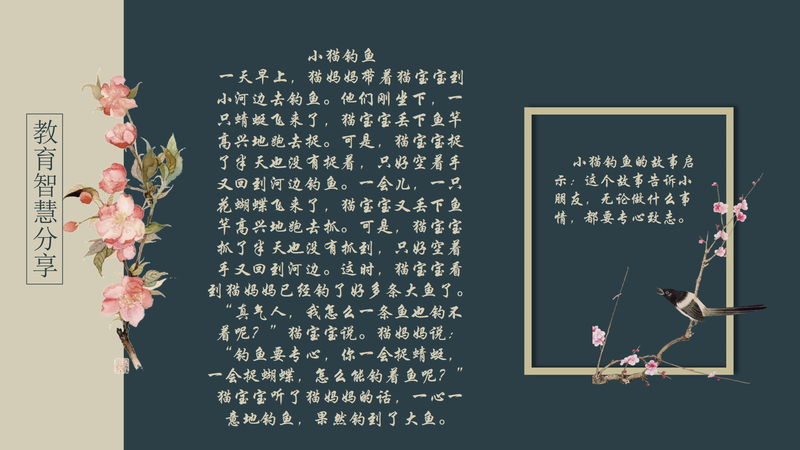 教育智慧分享
小猫钓鱼
一天早上，猫妈妈带着猫宝宝到
小河边去钓鱼。他们刚坐下，一
只蜻蜓飞来了，猫宝宝丢下鱼竿
高兴地跑去捉。可是，猫宝宝捉
了半天也没有捉着，只好空着手
又回到河边钓鱼。一会儿，一只
花蝴蝶飞来了，猫宝宝又丢下鱼
竿高兴地跑去抓。可是，猫宝宝
抓了半天也没有抓到，只好空着
手又回到河边。这时，猫宝宝看
到猫妈妈已经钓了好多条大鱼了。
“真气人，我怎么一条鱼也钓不
着呢？”猫宝宝说。猫妈妈说：
“钓鱼要专心，你一会捉蜻蜓，
一会捉蝴蝶，怎么能钓着鱼呢？”
猫宝宝听了猫妈妈的话，一心一
意地钓鱼，果然钓到了大鱼。
小猫钓鱼的故事启
示：这个故事告诉小
朋友，无论做什么事
情，都要专心致志。